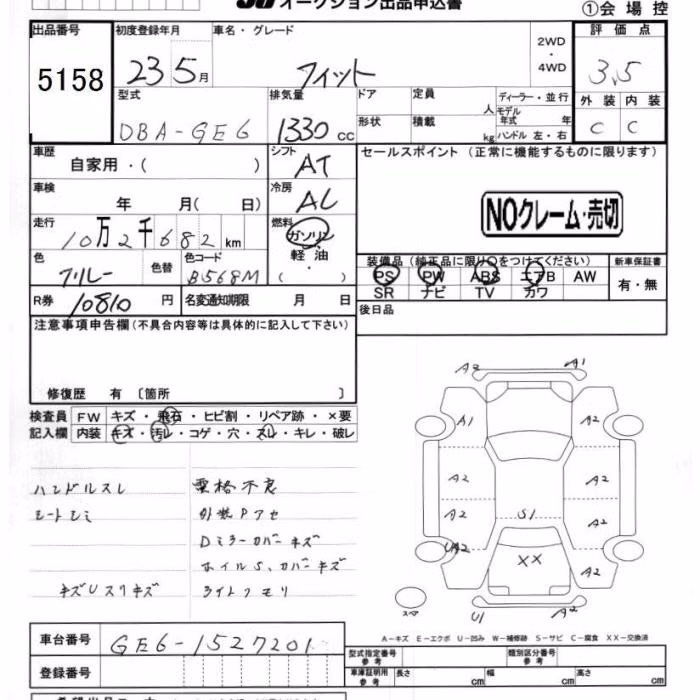 オークション出品申込書
①会場控
出品番号 初度登録年月 車名・グレード 2WD・4WD 評価点
5158 23 5月 フィット 3.5
型式 排気量 ドア 定員 人 ディーラー・並行 外装 内装
DBA-GE6 1330cc 形状 積載 kg モデル年式 年 ハンドル 左・右 C C
車歴 シフト セールスポイント (正常に機能するものに限ります)
自家用・( ) AT
車検 冷房
年 月( 日) AC
NOクレーム・売切
走行 燃料
10万2千682km ガソリン・軽油・( )
色 色替 色コード
ブルー B568M
装備品(純正品に限り○をつけてください) 新車保証書
PS PW ABS エアB AW 有・無
SR ナビ TV カワ
R券 10810円 名変通知期限 月 日
後日品
注意事項申告欄(不具合内容等は具体的に記入して下さい)
修復歴 有 〔箇所 〕
検査員 FW キズ・飛石・ヒビ割・リペア跡・×要
記入欄 内装 キズ・汚レ・コゲ・穴・スレ・キレ・破レ
ハンドルスレ 骨格不良
シートシミ 外装Pアセ
Dミラーカバーキズ
ホイルS,カバーキズ
キズUスリキズ ライトクモリ
A2 A1
A1 A2
A2 A2
A2 S1 A2
UA2 XX A2
スペ U1 A2
A-キズ E-エクボ U-凹み W-補修跡 S-サビ C-腐食 XX-交換済
車台番号 GE6-1527201
型式指定番号 参考 類別区分番号 参考
登録番号
車庫証明用 参考 長さ cm 幅 cm 高さ cm